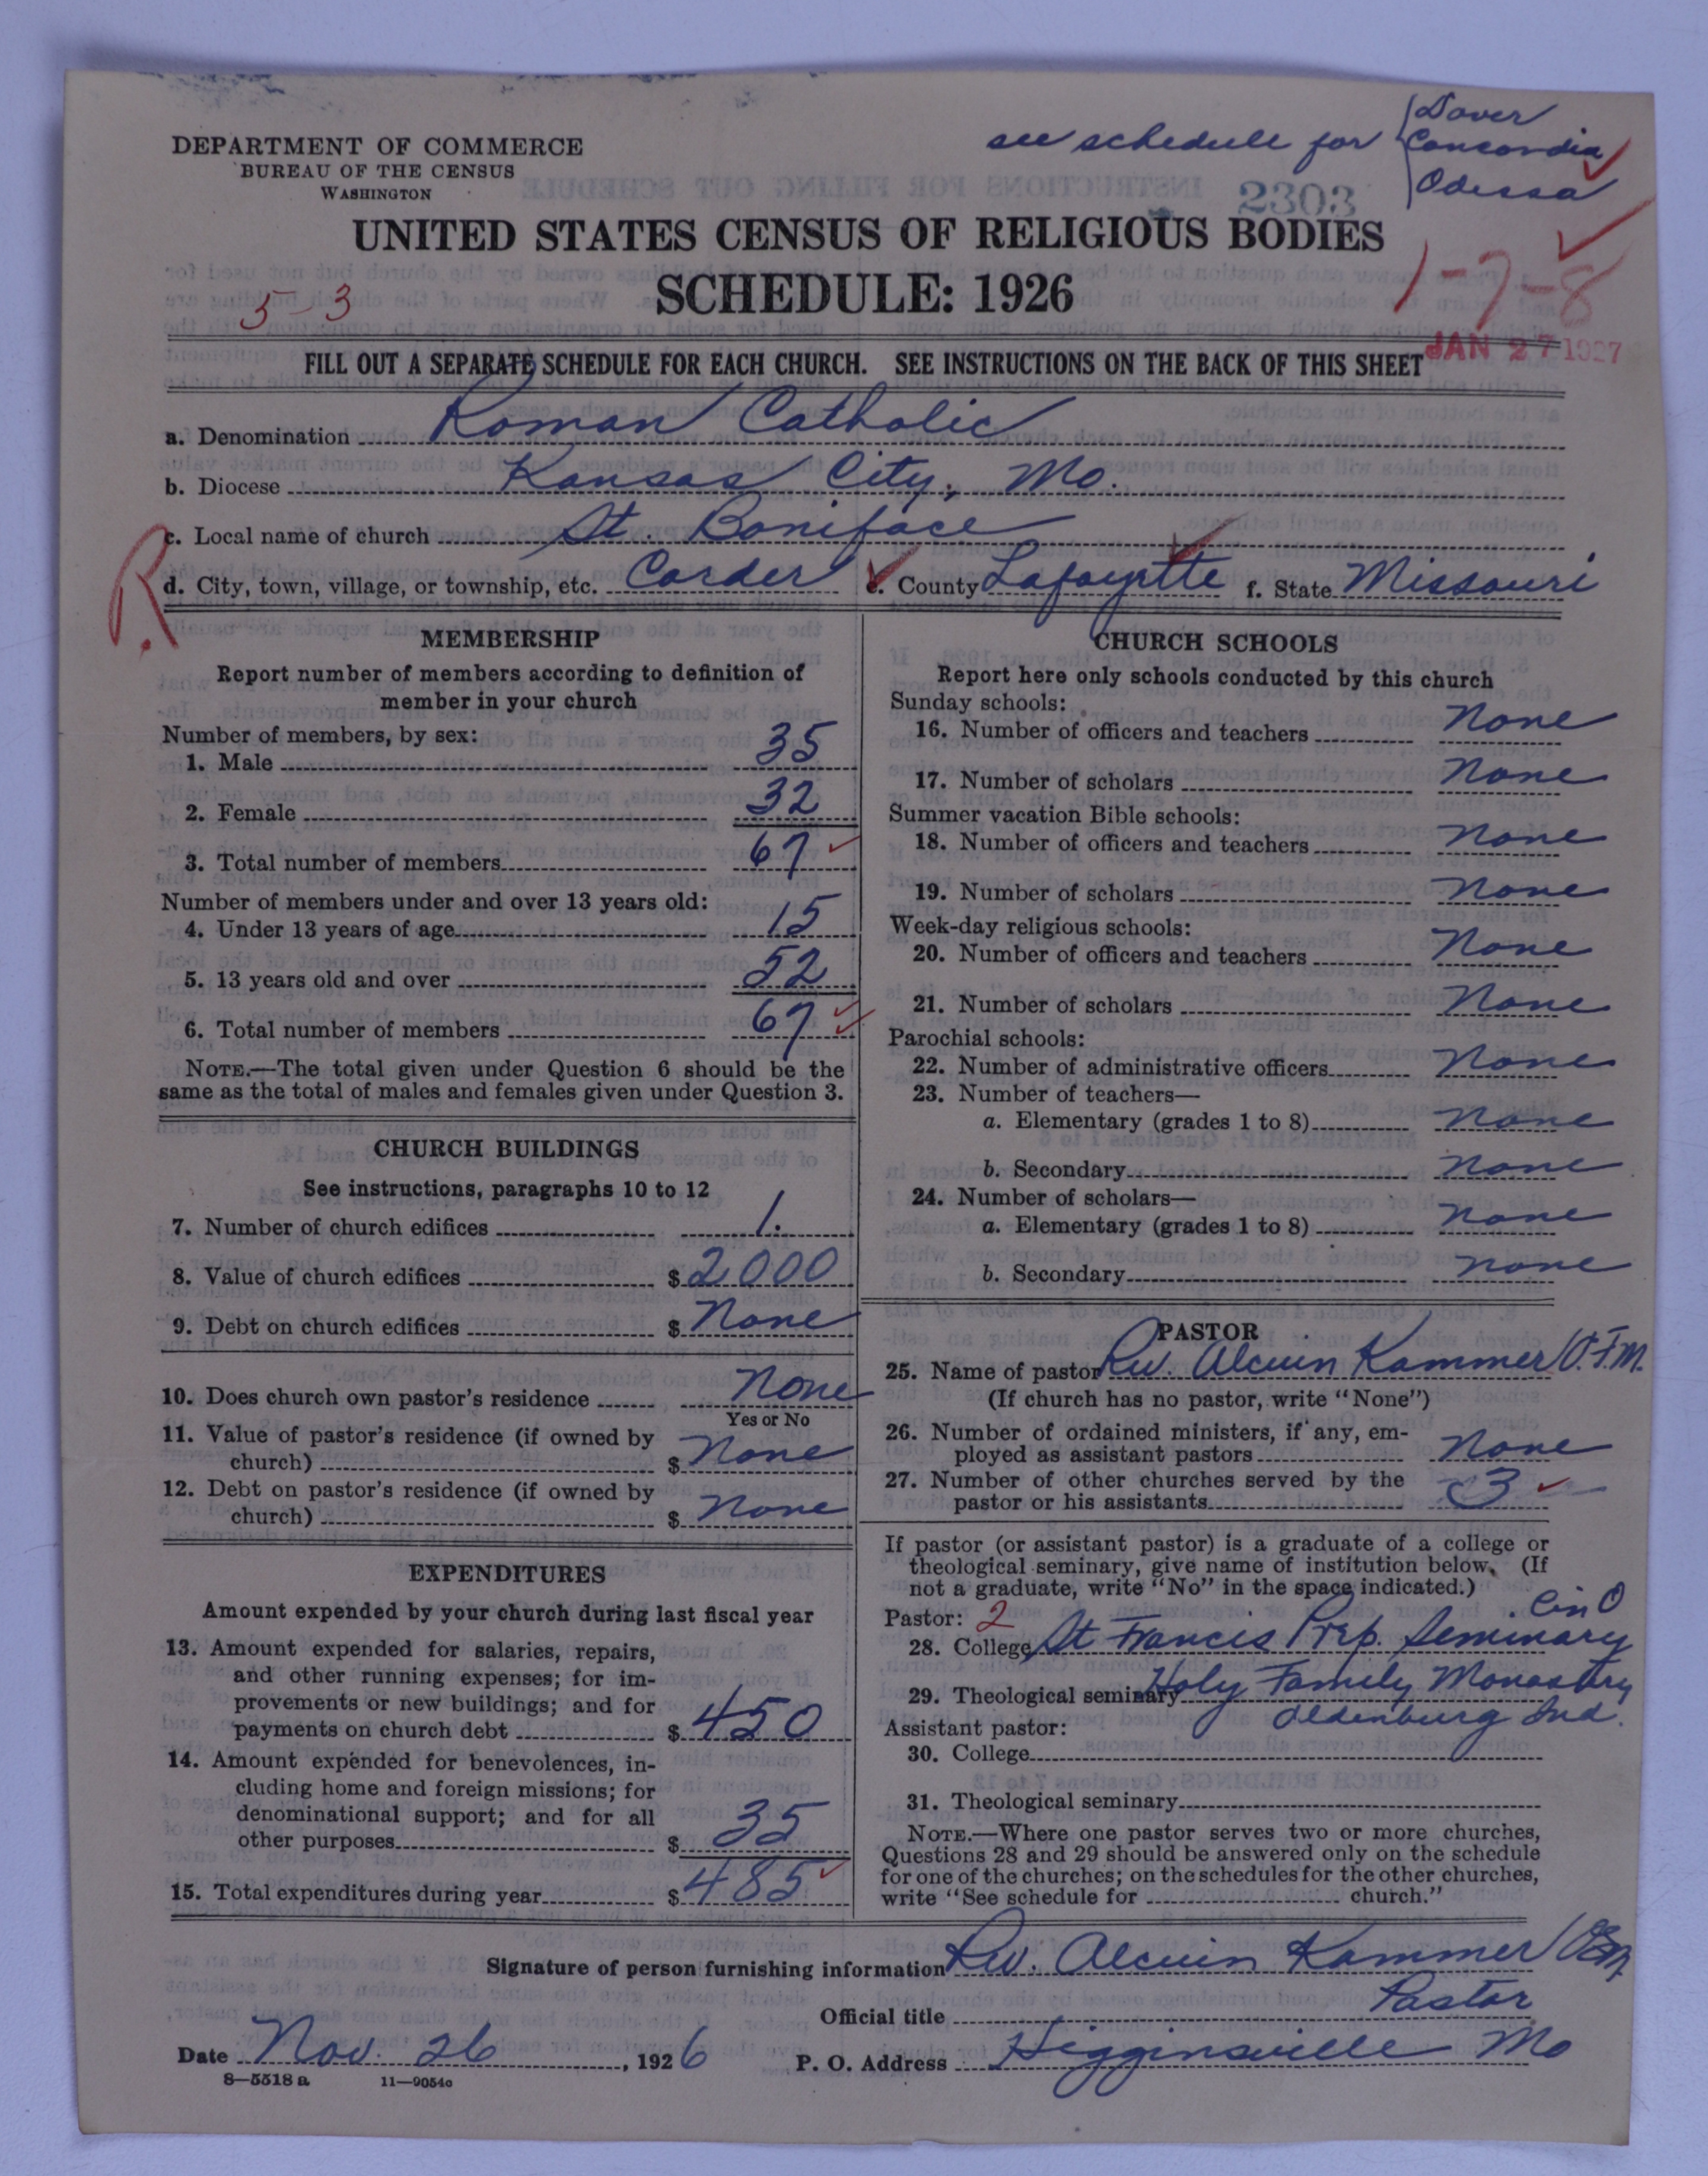 see schedule for { Dover
Concordia
Odessa
DEPARTMENT OF COMMERCE
BUREAU OF THE CENSUS
WASHINGTON
2303
UNITED STATES CENSUS OF RELIGIOUS BODIES
SCHEDULE: 1926
5-3
1-7-8
JAN 27 1927
FILL OUT A SEPARATE SCHEDULE FOR EACH CHURCH. SEE INSTRUCTIONS ON THE BACK OF THIS SHEET
a. Denomination Roman Catholic
b. Diocese Kansas City, Mo.
c. Local name of church St. Boniface
R.
d. City, town, village, or township, etc. Corder e. County Lafayette f. State Missouri
MEMBERSHIP
Report number of members according to definition of
member in your church
Number of members, by sex:
1. Male 35
2. Female 32
3. Total number of members 67
Number of members under and over 13 years old:
4. Under 13 years of age 15
5. 13 years old and over 52
6. Total number of members 67
NOTE.—The total given under Question 6 should be the
same as the total of males and females given under Question 3.
CHURCH BUILDINGS
See instructions, paragraphs 10 to 12
7. Number of church edifices 1.
8. Value of church edifices $ 2000
9. Debt on church edifices $ None
10. Does church own pastor's residence None
Yes or No
11. Value of pastor's residence (if owned by
church) $ None
12. Debt on pastor's residence (if owned by
church) $ None
EXPENDITURES
Amount expended by your church during last fiscal year
13. Amount expended for salaries, repairs,
and other running expenses; for im-
provements or new buildings; and for
payments on church debt $ 450
14. Amount expended for benevolences, in-
cluding home and foreign missions; for
denominational support; and for all
other purposes $ 35
15. Total expenditures during year $ 485
CHURCH SCHOOLS
Report here only schools conducted by this church
Sunday schools:
16. Number of officers and teachers None
17. Number of scholars None
Summer vacation Bible schools:
18. Number of officers and teachers None
19. Number of scholars None
Week-day religious schools:
20. Number of officers and teachers None
21. Number of scholars None
Parochial schools:
22. Number of administrative officers None
23. Number of teachers—
a. Elementary (grades 1 to 8) None
b. Secondary None
24. Number of scholars—
a. Elementary (grades 1 to 8) None
b. Secondary None
PASTOR
25. Name of pastor Rev. Alcuin Kammer O.F.M.
(If church has no pastor, write "None")
26. Number of ordained ministers, if any, em-
ployed as assistant pastors None
27. Number of other churches served by the
pastor or his assistants 3
If pastor (or assistant pastor) is a graduate of a college or
theological seminary, give name of institution below. (If
not a graduate, write "No" in the space indicated.)
Pastor: 2 Cin O
28. College St Francis Prep. Seminary
29. Theological seminary Holy Family Monastery
Oldenburg Ind.
Assistant pastor:
30. College
31. Theological seminary
NOTE.—Where one pastor serves two or more churches,
Questions 28 and 29 should be answered only on the schedule
for one of the churches; on the schedules for the other churches,
write "See schedule for church."
Signature of person furnishing information Rev. Alcuin Kammer OFM
Official title Pastor
Date Nov. 26, 1926 P. O. Address Higginsville Mo
8—5518 a 11—9054c